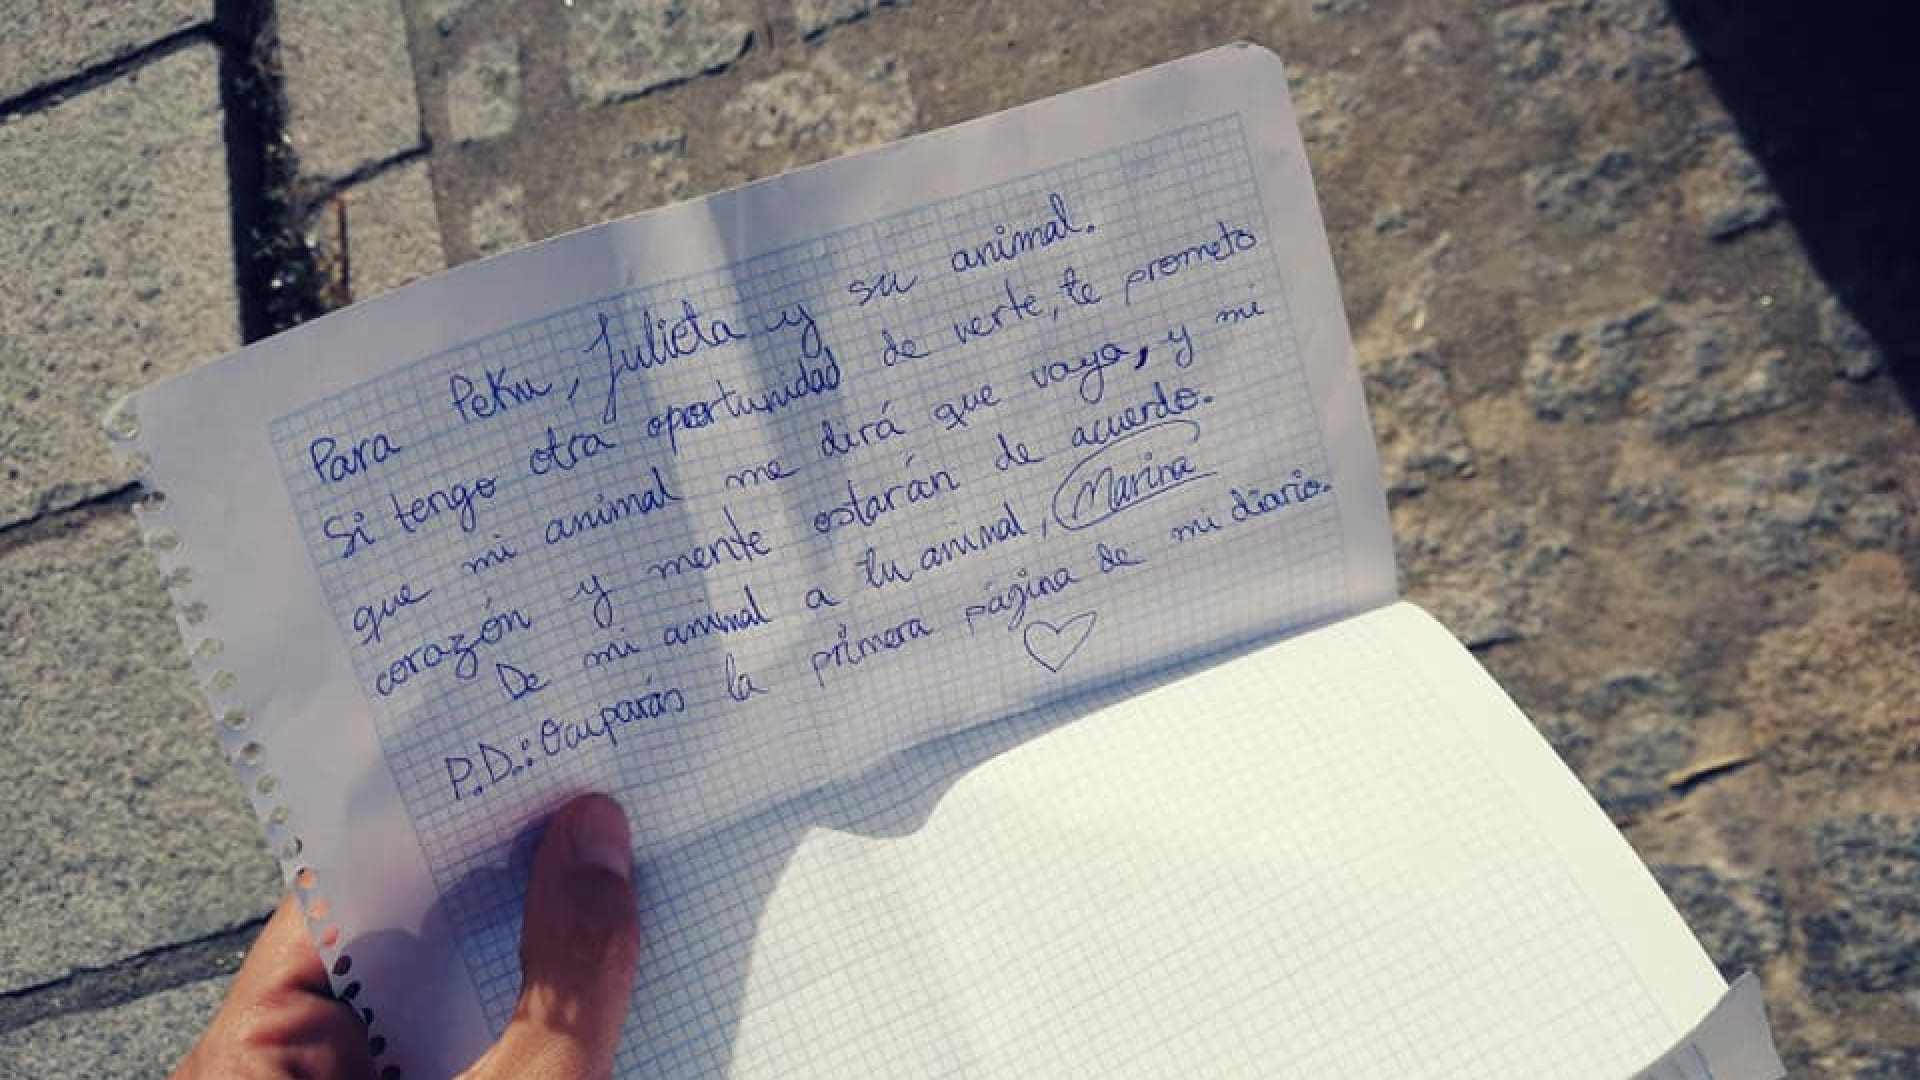 Para Peku, Julieta y su animal.
Si tengo otra oportunidad de verte, te prometo
que mi animal me dirá que vaya, y mi
corazón y mente estarán de acuerdo.
De mi animal a tu animal, Marina
P.D.: Ocuparás la primera página de mi diario.